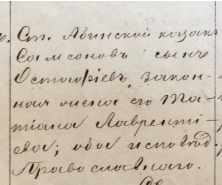 Ст. Абинской козакъ
Самсоновъ сынъ
Остафіевъ, закон-
ная жена его Та-
тіана Лавренті-
ева; обои исповѣд.
Православнаго.